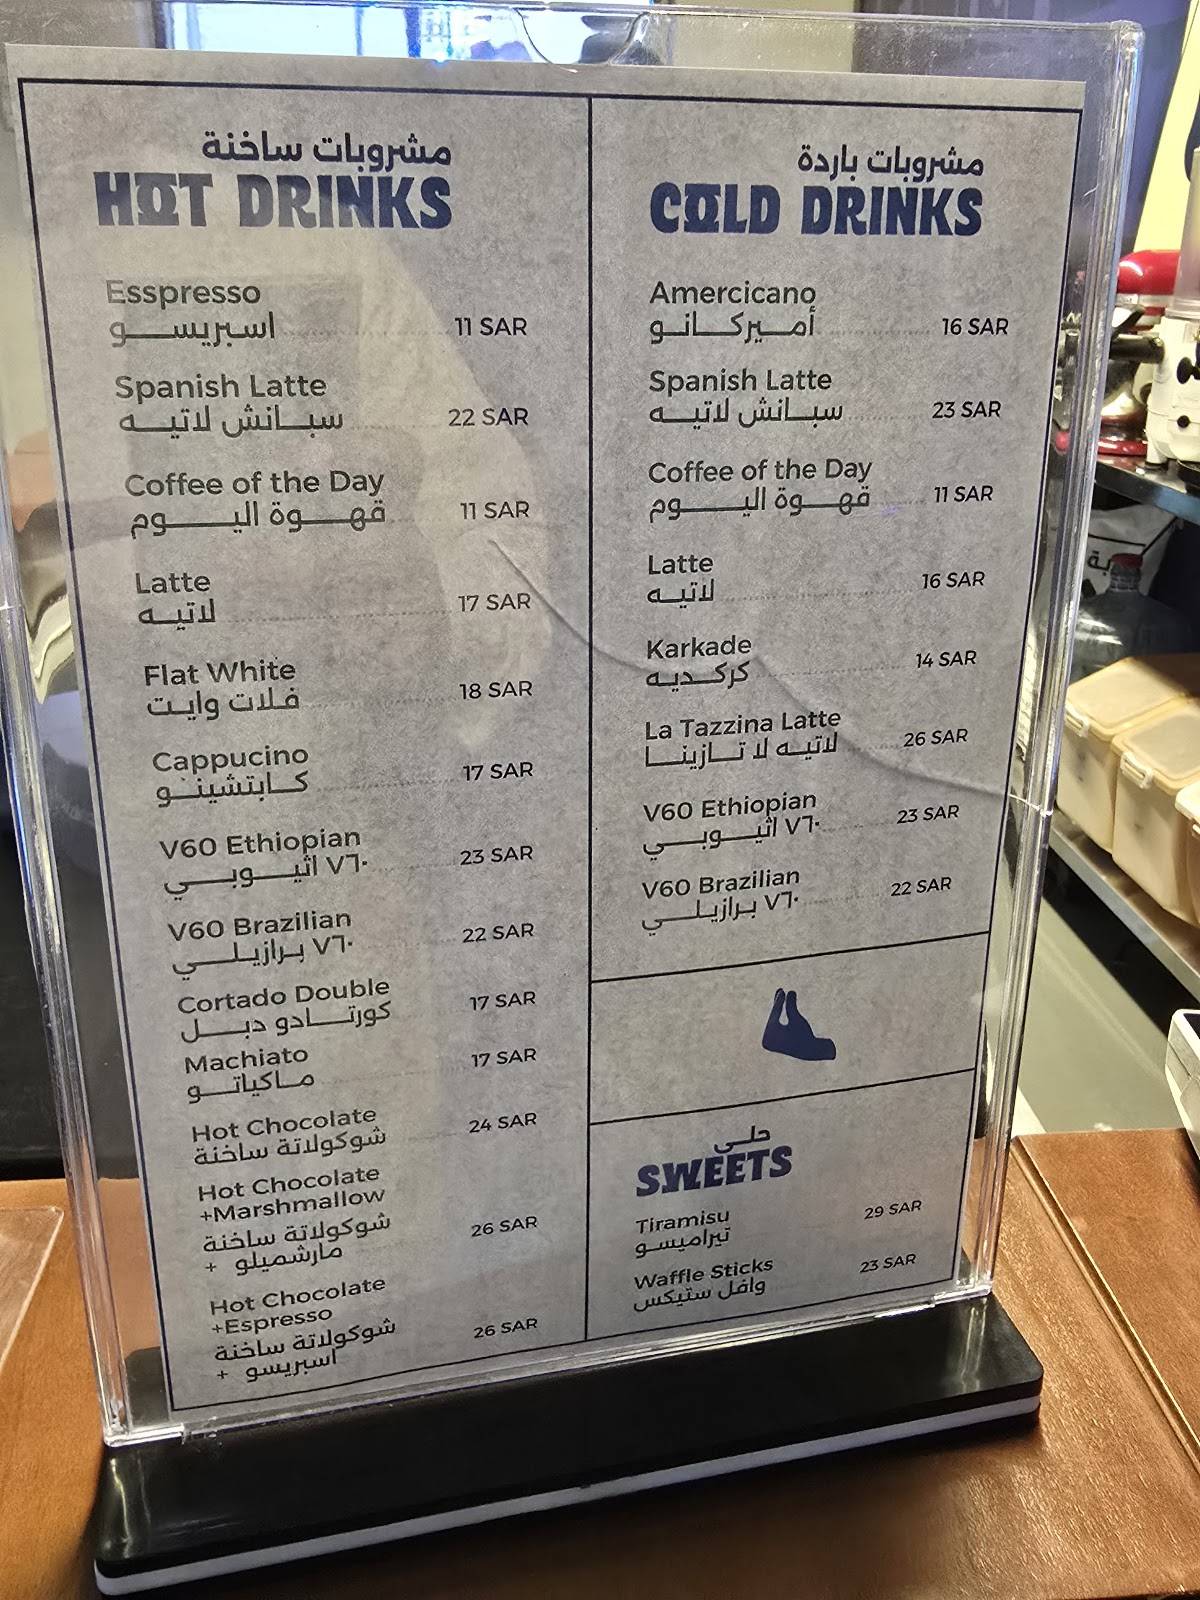 مشروبات ساخنة
HOT DRINKS
Esspresso
اسبريسو 11 SAR
Spanish Latte
سبانش لاتيه 22 SAR
Coffee of the Day
قهوة اليوم 11 SAR
Latte
لاتيه 17 SAR
Flat White
فلات وايت 18 SAR
Cappucino
كابتشينو 17 SAR
V60 Ethiopian
٧٦٠ اثيوبي 23 SAR
V60 Brazilian
٧٦٠ برازيلي 22 SAR
Cortado Double
كورتادو دبل 17 SAR
Machiato
ماكياتو 17 SAR
Hot Chocolate
شوكولاتة ساخنة 24 SAR
Hot Chocolate
+Marshmallow
شوكولاتة ساخنة 26 SAR
+ مارشميلو
Hot Chocolate
+Espresso
شوكولاتة ساخنة 26 SAR
+ اسبريسو
مشروبات باردة
COLD DRINKS
Amercicano
أميركانو 16 SAR
Spanish Latte
سبانش لاتيه 23 SAR
Coffee of the Day
قهوة اليوم 11 SAR
Latte
لاتيه 16 SAR
Karkade
كركديه 14 SAR
La Tazzina Latte
لاتيه لا تازينا 26 SAR
V60 Ethiopian
٧٦٠ اثيوبي 23 SAR
V60 Brazilian
٧٦٠ برازيلي 22 SAR
حلى
SWEETS
Tiramisu
تيراميسو 29 SAR
Waffle Sticks
وافل ستيكس 23 SAR